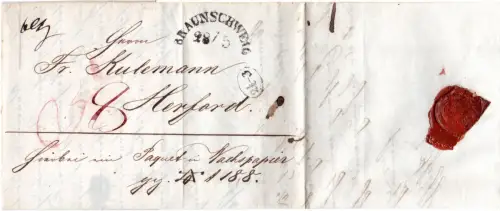 BRAUNSCHWEIG
28/5
Herrn
Fr. Kulemann
Herford.
Hierbei ein Paquet in Wachspapier
188.